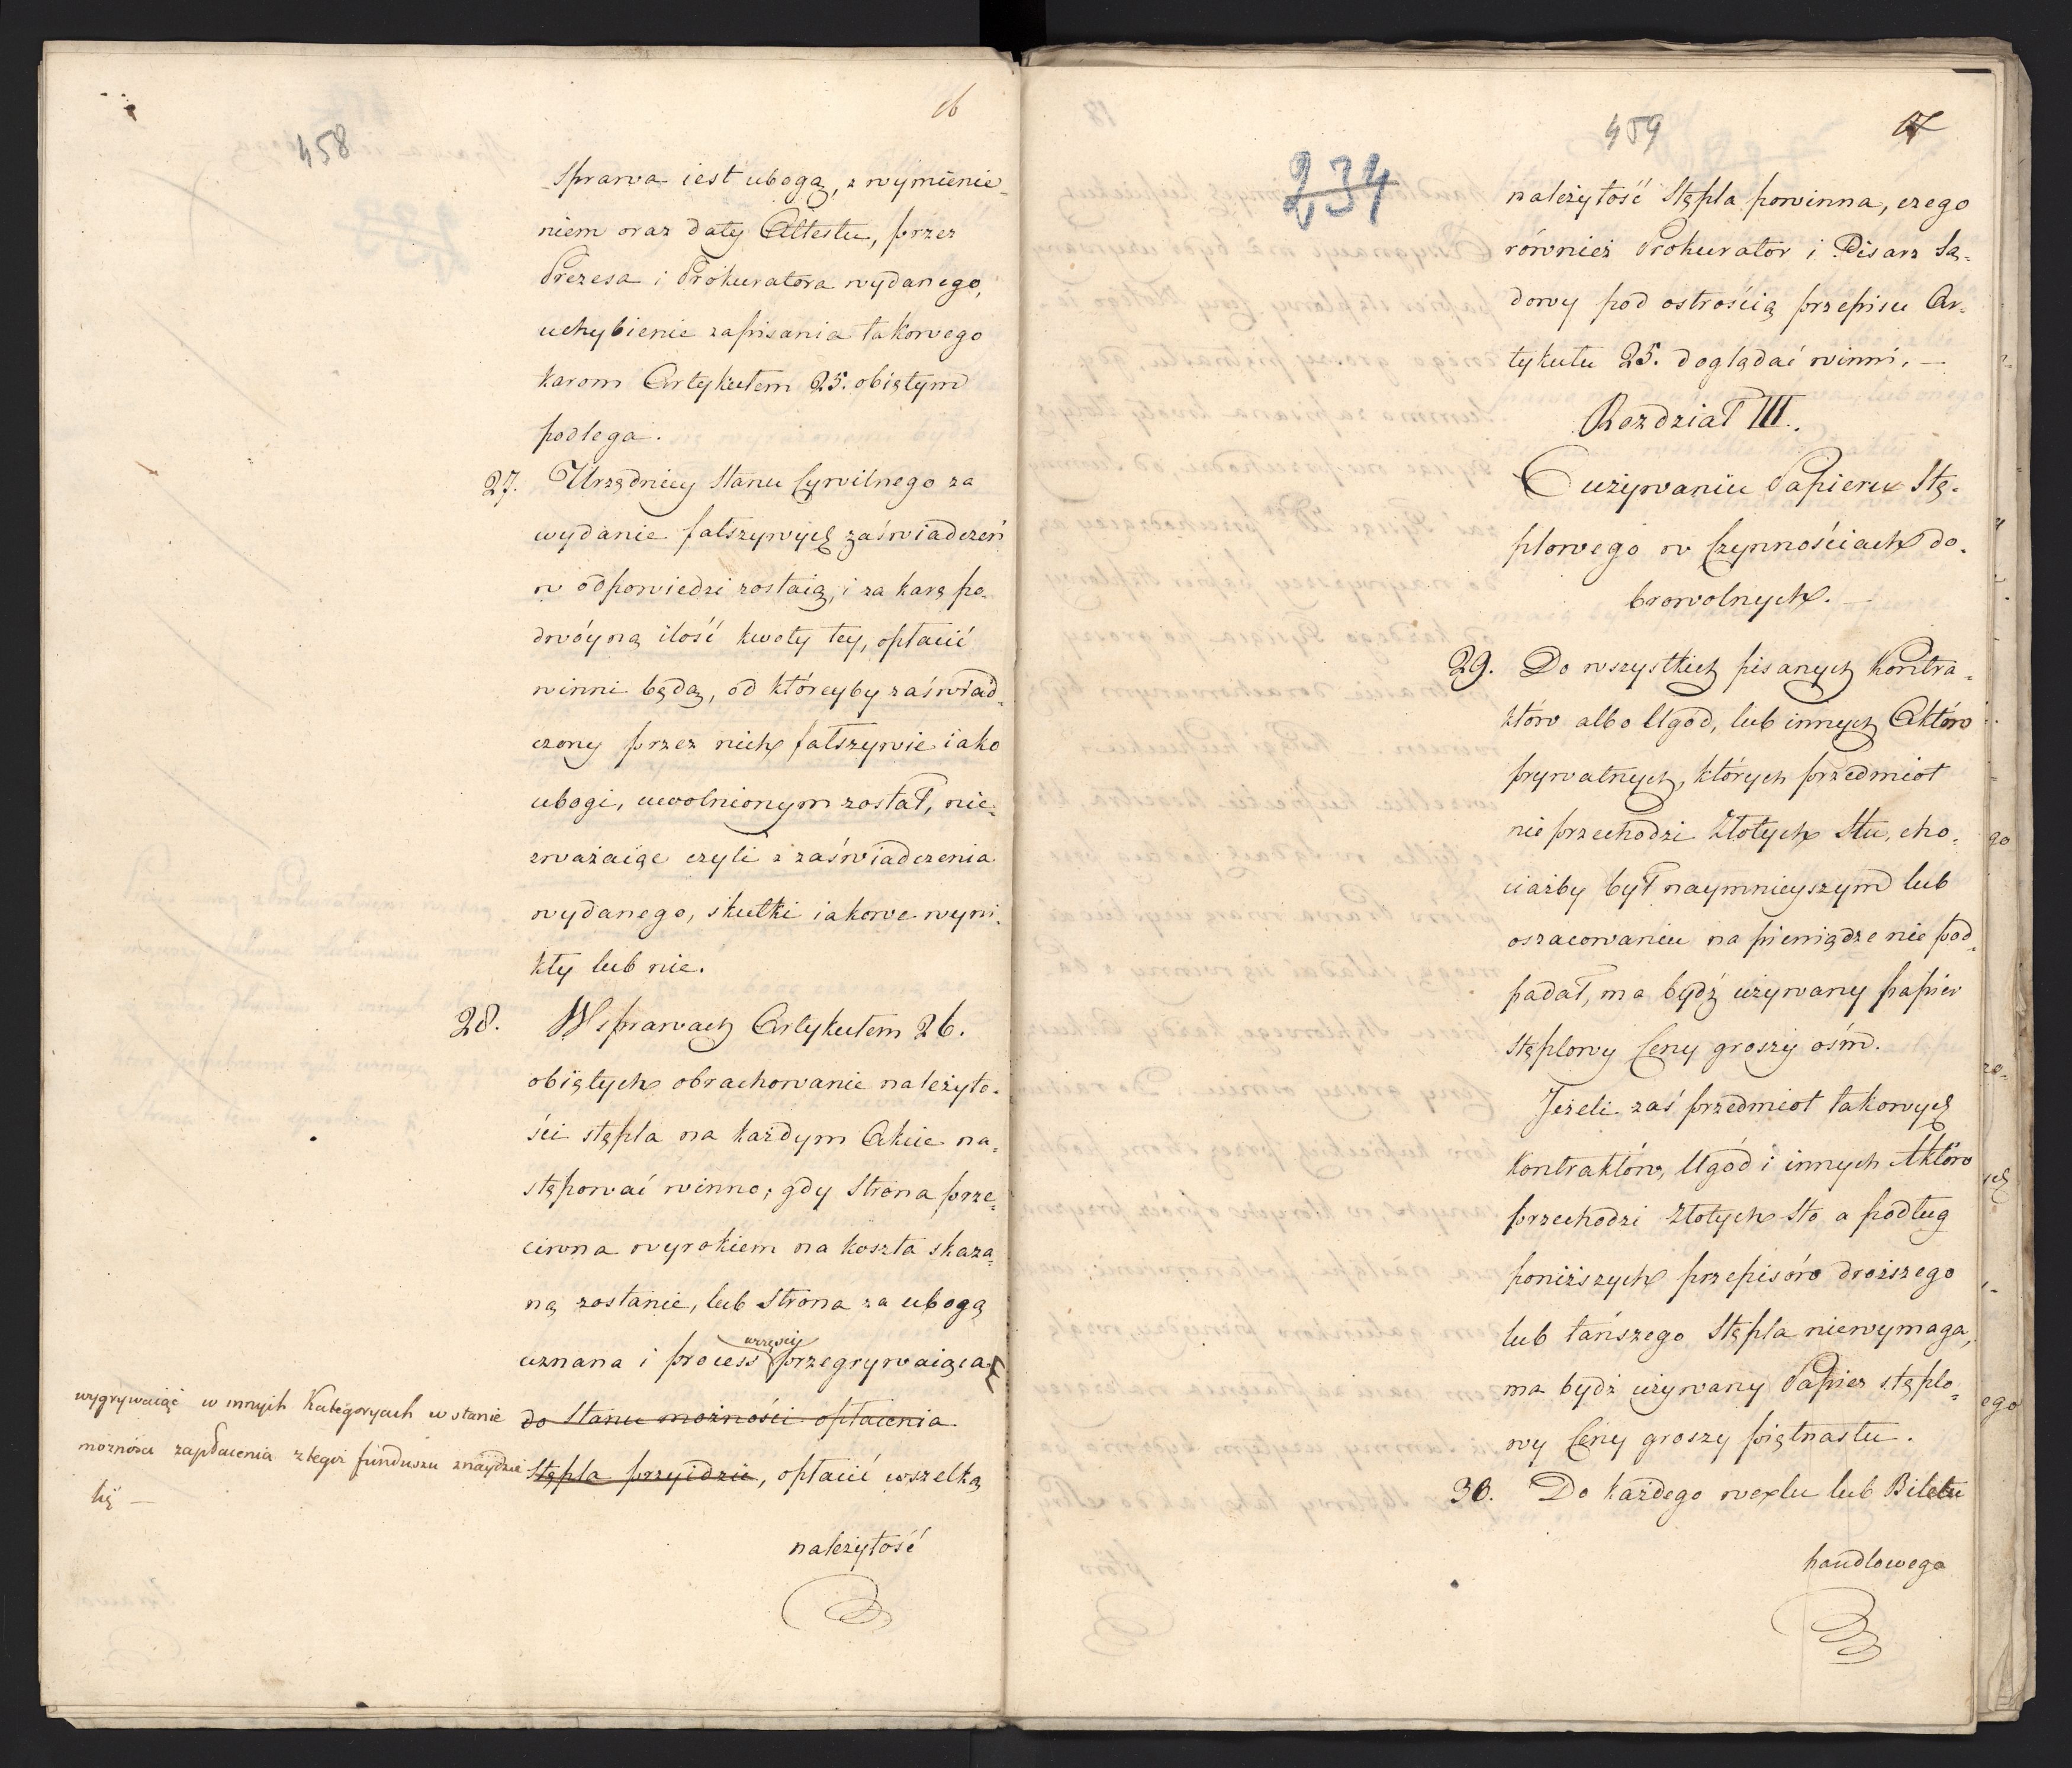 16
458
sprawa iest ubogą, z wymienie-
niem oraz daty Attestu, przez
Prezesa i Prokuratora wydanego,
uchybienie zapisania takowego
karom Artykułem 25. obiętym
podlega.
27. Urzędnicy Stanu Cywilnego za
wydanie fałszywych zaświadczeń
w odpowiedzi zostaią, i za karę po-
dwóyną ilość kwoty tey, opłacić
winni będą, od któreyby zaświad-
czony przez nich fałszywie iako
ubogi, uwolnionym został, nie-
zważaiąc czyli z zaświadczenia
wydanego, skutki iakowe wyni-
kły lub nie.
28. W sprawach Artykułem 26.
obiętych obrachowanie należyto-
ści stępla na każdym Akcie na-
stępować winno; gdy Strona prze-
ciwna wyrokiem na koszta skaza-
ną zostanie, lub Strona za ubogą
uznana i process przegrywaiąca
do Stanu możności opłacenia
Stępla przyidzie, opłacić wszelką
wygrywaiąc w innych Kategoryach w stanie
możności zapłacenia z tegoż funduszu znaydzie
się —
należytość
459
17
234
należytość Stępla powinna, czego
również Prokurator i Pisarz Są-
dowy pod ostrością przepisu Ar-
tykułu 25. doglądać winni. —
Rozdział III.
O używaniu Papieru Stę-
plowego w Czynnościach do-
browolnych. —
29. Do wszystkich pisanych Kontra-
któw albo Ugód, lub innych Aktów
prywatnych, których przedmiot
nie przechodzi Złotych Stu, cho-
ciażby był naymnieyszym lub
oszacowaniu na pieniądze nie pod-
padał, ma bydź używany papier
Stęplowy Ceny groszy ośm.
Jeżeli zaś przedmiot takowych
Kontraktów, Ugód i innych Aktów
przechodzi Złotych Sto a podług
poniższych przepisów droższego
lub tańszego Stępla niewymaga,
ma bydź używany Papier stęplo-
wy Ceny groszy piętnastu.
30. Do każdego wexlu lub Biletu
handlowego